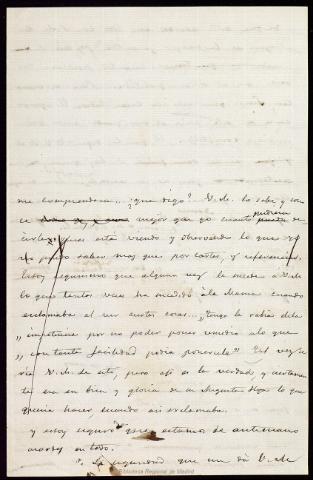 me comprendera... ¿que digo? V. de. lo sabe y cono
ce mejor que yo cuanto pudiera de
cirles, pues está viendo y observando lo que yo
no puedo saber mas que por cartas, y referencias,
Estoy segurisimo que alguna vez le sucede a V. de
lo que tantas veces ha sucedido á la Mamá cuando
esclamaba al ver ciertas cosas... "¡Tengo la rabia de la
"impotencia por no poder poner remedio a lo que
"con tanta facilidad podia ponersele" tal vez se
ria V. de. de esto, pero asi es la verdad y ciertamen
te era en bien y gloria de su Augusta Hija lo que
queria hacer, cuando asi esclamaba.
Y estoy seguro que estamos de antemano
acordes en todo.
La seguridad que me dá V. de.
Biblioteca Regional de Madrid